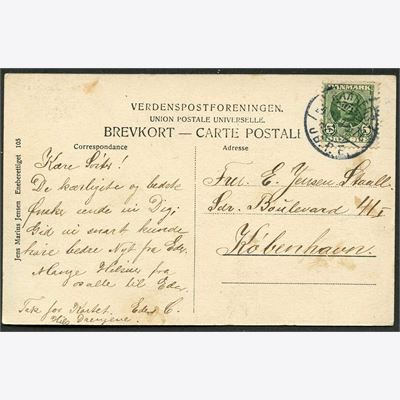 VERDENSPOSTFORENINGEN.
UNION POSTALE UNIVERSELLE.
BREVKORT — CARTE POSTALE
Correspondance
Adresse
DANMARK
Jens Marius Jensen Eneboretiget 105
Kære
De kærligste og bedste
Ønsker sende vi Dig;
Gid vi snart kunde
høre bedre Nyt fra Eder.
Mange Hilsner fra
os alle til Eder.
Tak for Kortet. Eders C.
Hils Drengene.
Fru. E. Jensen
Sdr. Boulevard
København.